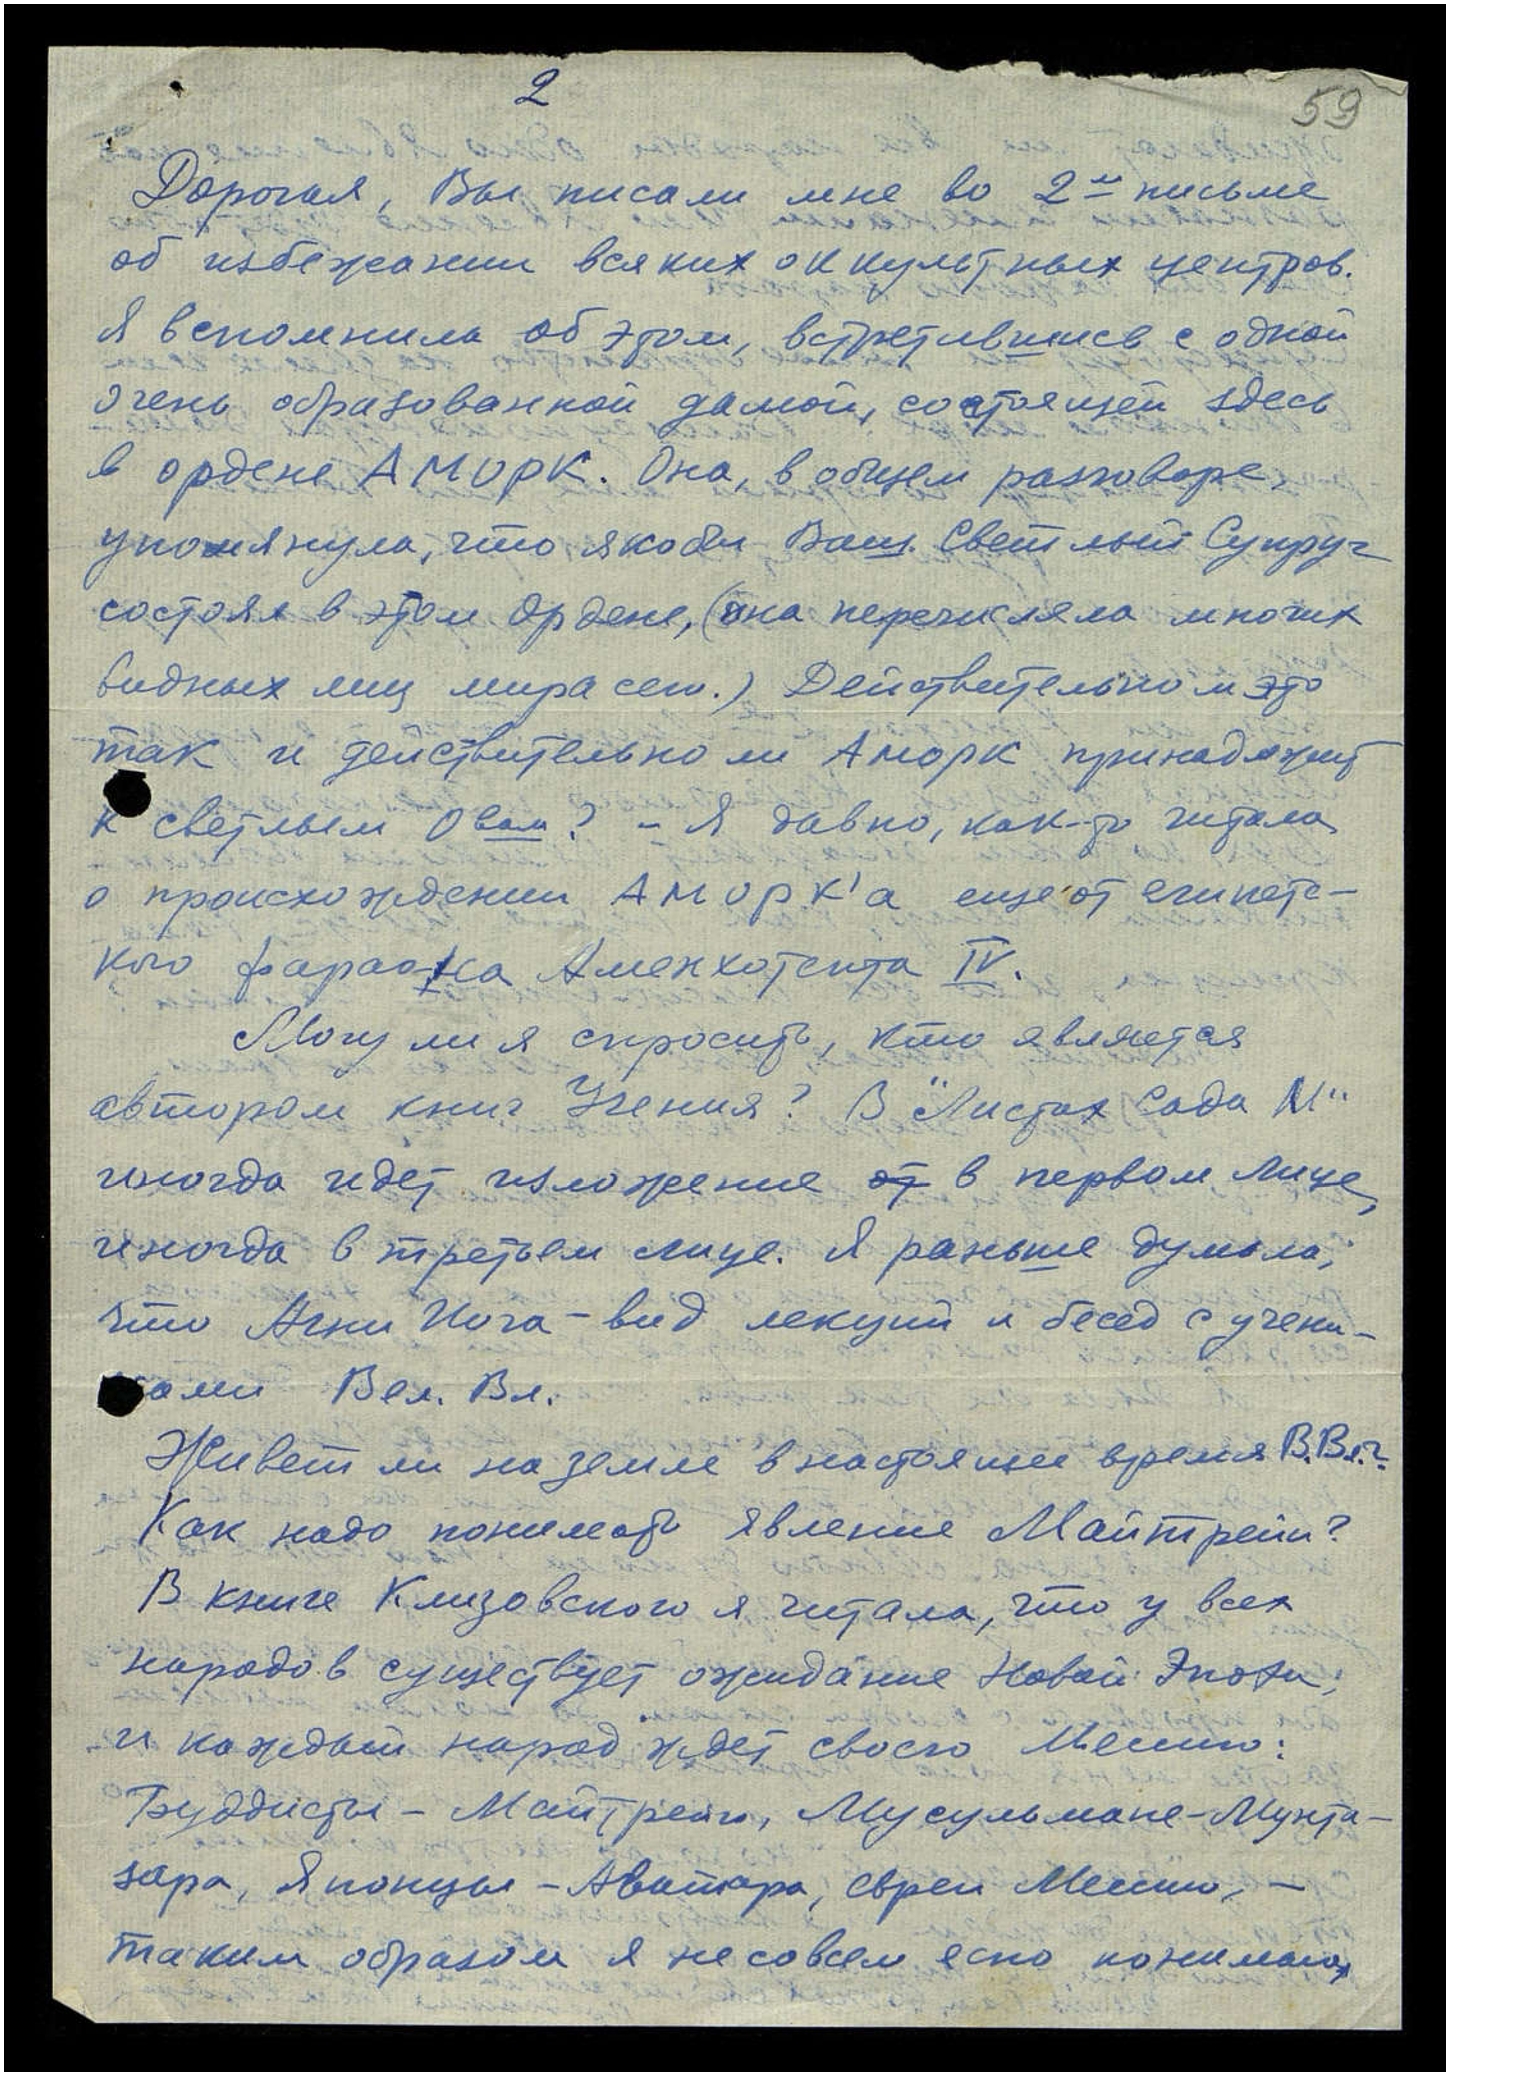 2
59
Дорогая, Вы писали мне во 2м письме
об избежании всяких оккультных центров.
Я вспомнила об этом, встретившись с одной
очень образованной дамой, состоящей здесь
в ордене АМОРК. Она, в общем разговоре,
упомянула, что якобы Ваш Светлый Супруг
состоял в этом Ордене, (она перечисляла многих
видных лиц мира сего.) Действительно ли это
так и действительно ли Аморк принадлежит
к светлым Овам? - Я давно, как-то читала
о происхождении АМОРК'а еще от египетс-
кого фараона Аменхотепа IV.
Могу ли я спросить, кто является
автором книг Учения? В "Листах Сада М"
иногда идет изложение от в первом лице,
иногда в третьем лице. Я раньше думала,
что Агни Йога - вид лекций и бесед с учени-
ками Вел. Вл.
Живет ли на земле в настоящее время В.Вл.?
Как надо понимать явление Майтрейи?
В книге Клизовского я читала, что у всех
народов существует ожидание Новой Эпохи;
и каждый народ ждет своего Мессию:
Буддисты - Майтрейю, Мусульмане - Мунта-
зара, Японцы - Аватара, евреи Мессию, -
таким образом я не совсем ясно понимаю,